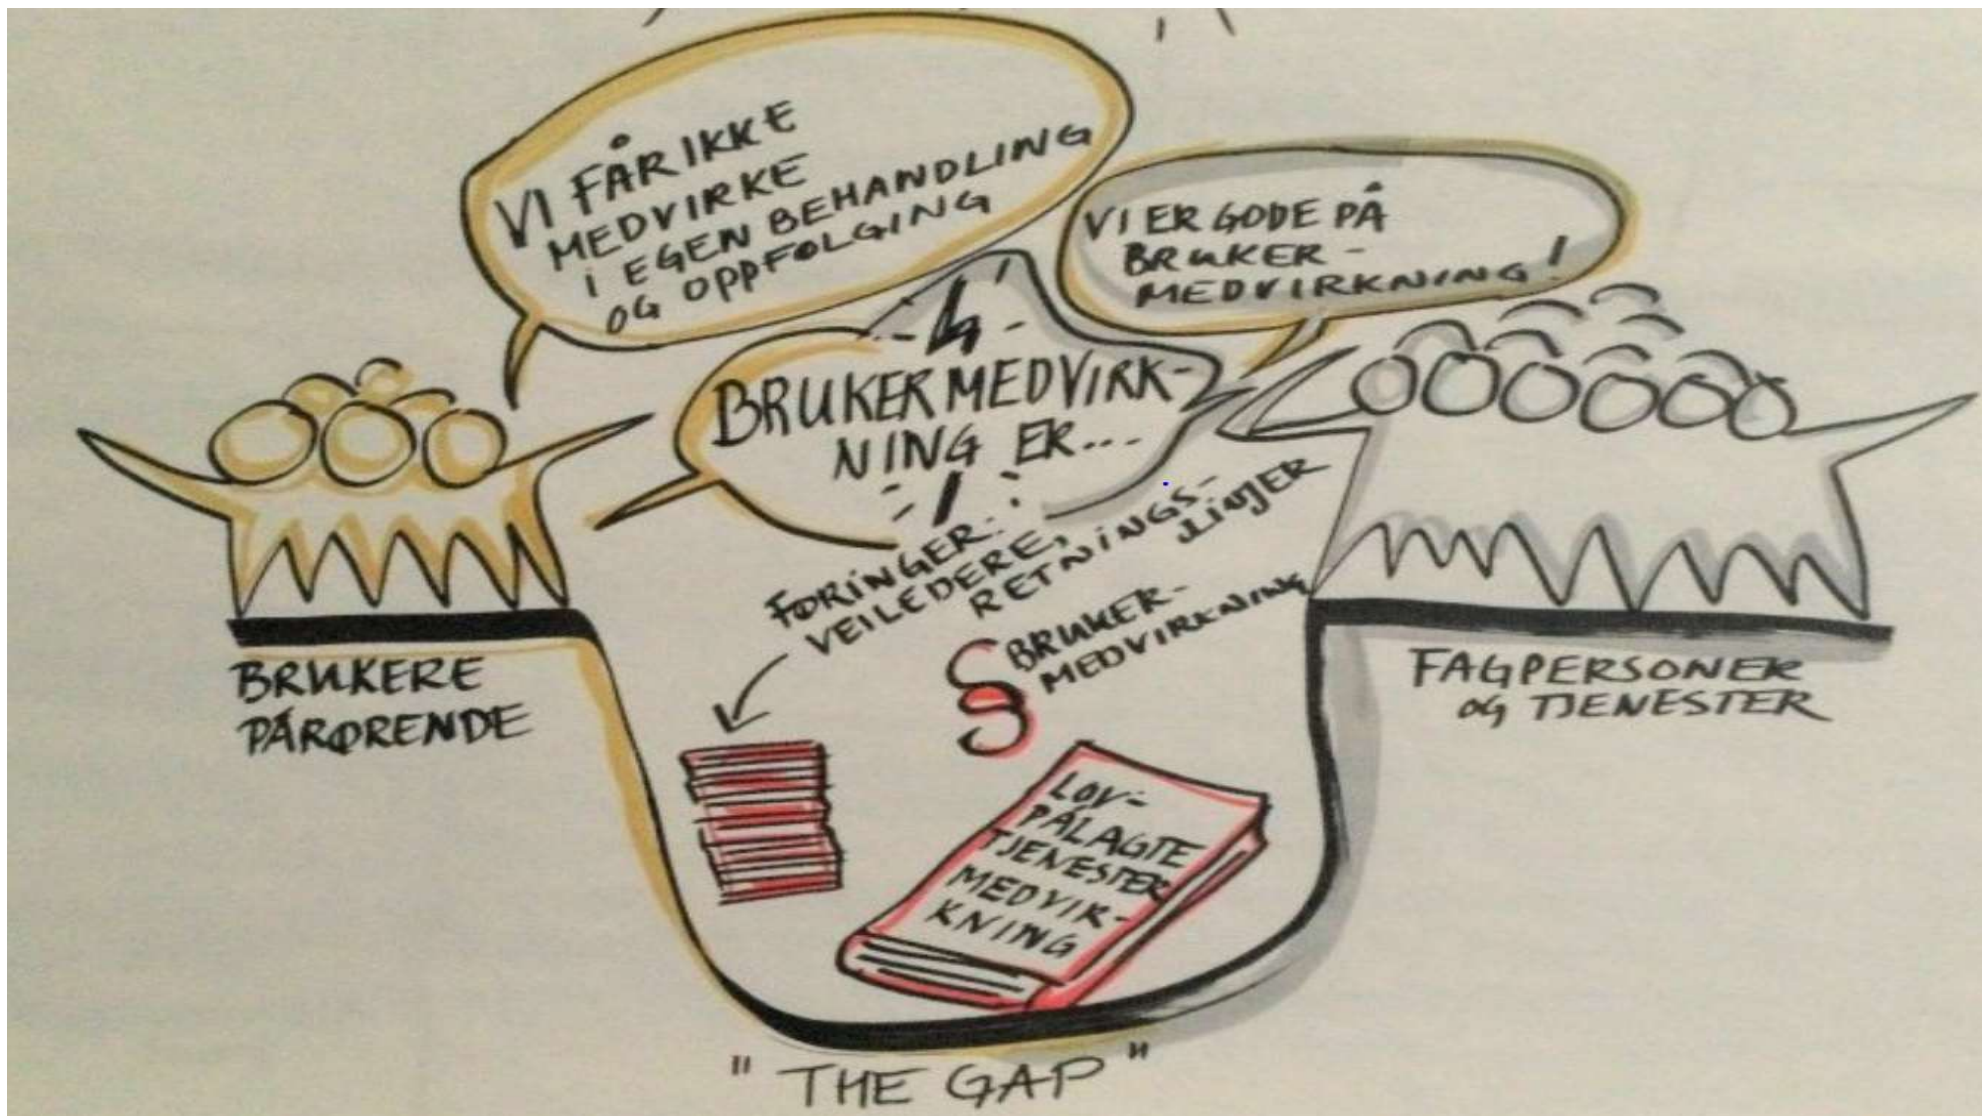 VI FÅR IKKE
MEDVIRKE
I EGEN BEHANDLING
OG OPPFØLGING
VI ER GODE PÅ
BRUKER-
MEDVIRKNING!
BRUKERMEDVIRK-
NING ER...
FØRINGER.
VEILEDERE,
RETNINGS-
LINJER
§ BRUKER-
MEDVIRKNING
BRUKERE
PÅRØRENDE
FAGPERSONER
OG TJENESTER
LOV-
PÅLAGTE
TJENESTER
MEDVIR-
KNING
"THE GAP"